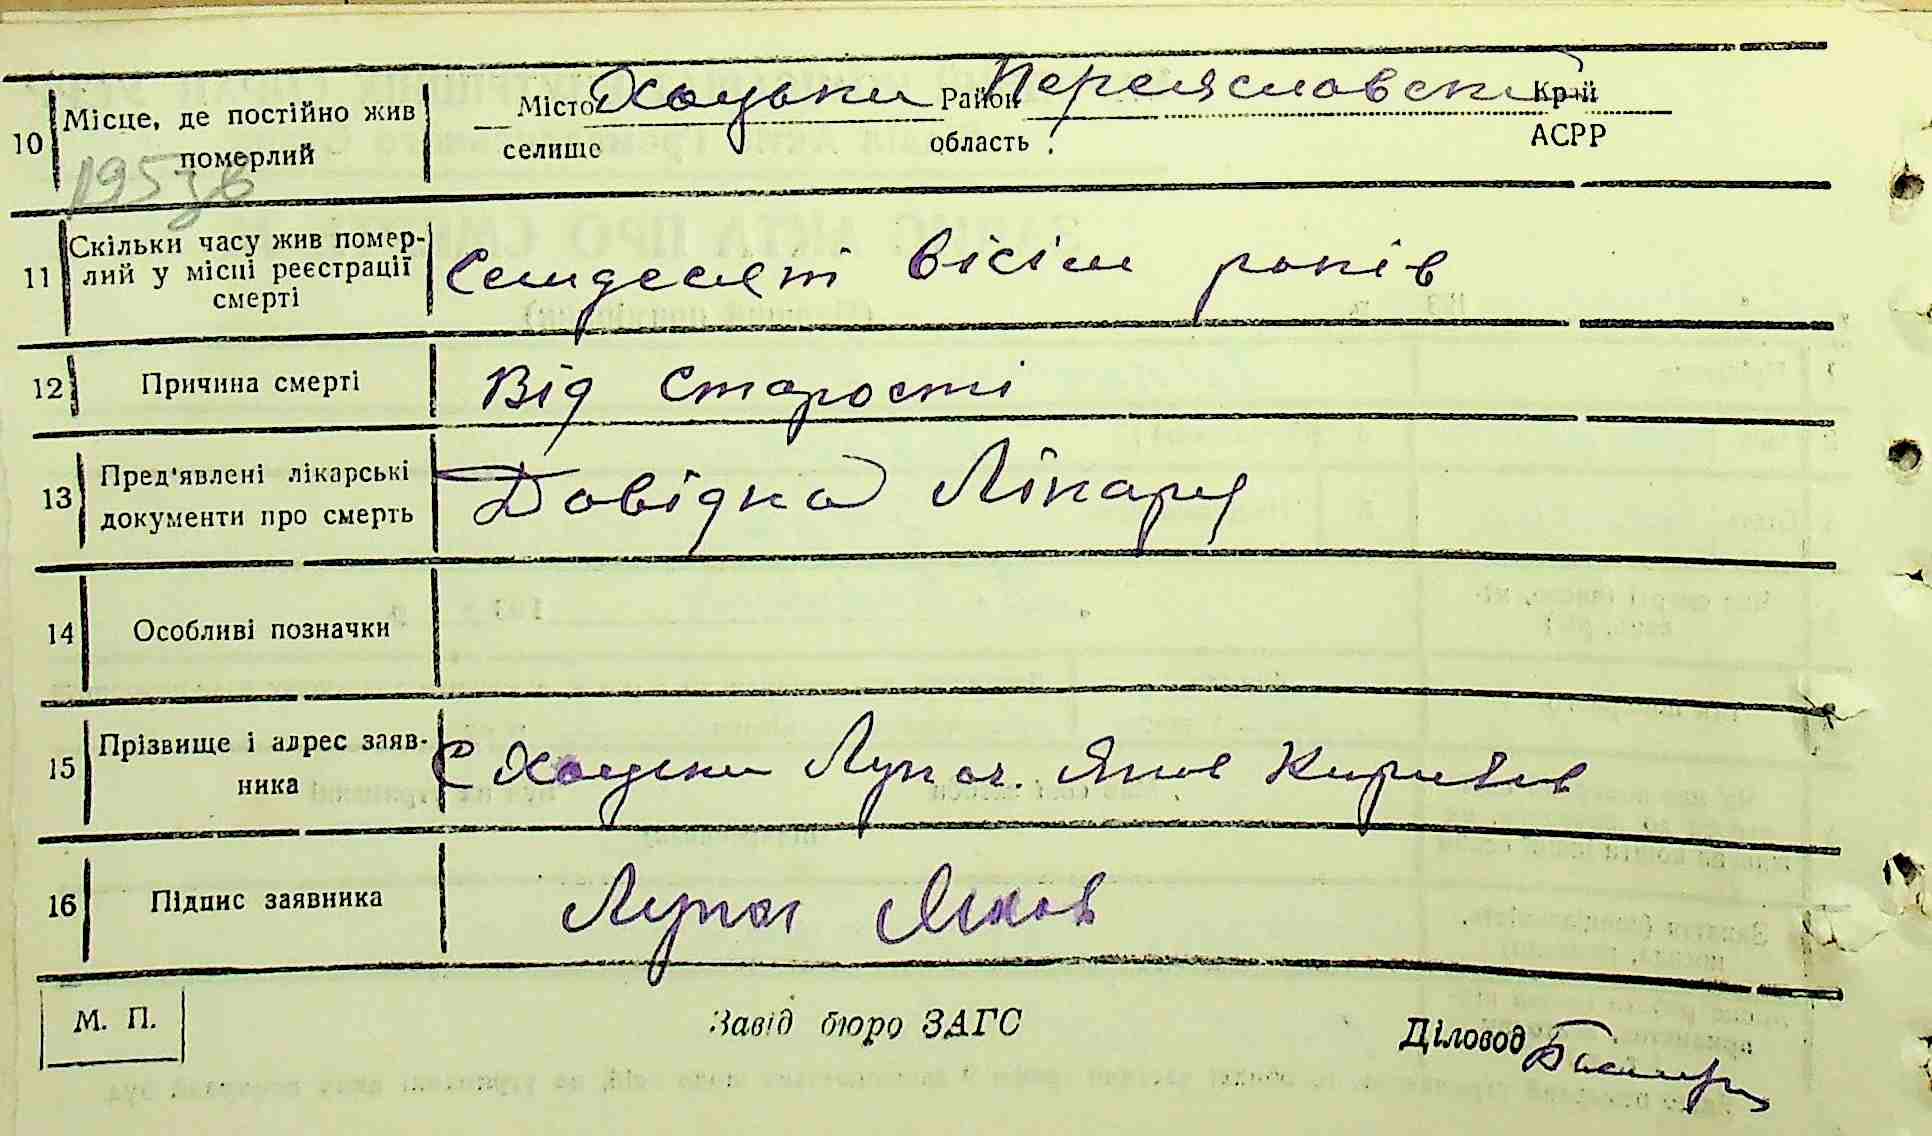 10 Місце, де постійно жив померлий Місто селище Хоцьки Район область Переяславский Край АСРР
11 Скільки часу жив померлий у місці реєстрації смерті Семдесят вісім років
12 Причина смерті Від старості
13 Пред'явлені лікарські документи про смерть Довідка Лікаря
14 Особливі позначки
15 Прізвище і адрес заявника С Хоцьки Лупач. Яков
16 Підпис заявника Лупач Яков
М. П. Завід бюро ЗАГС Діловод